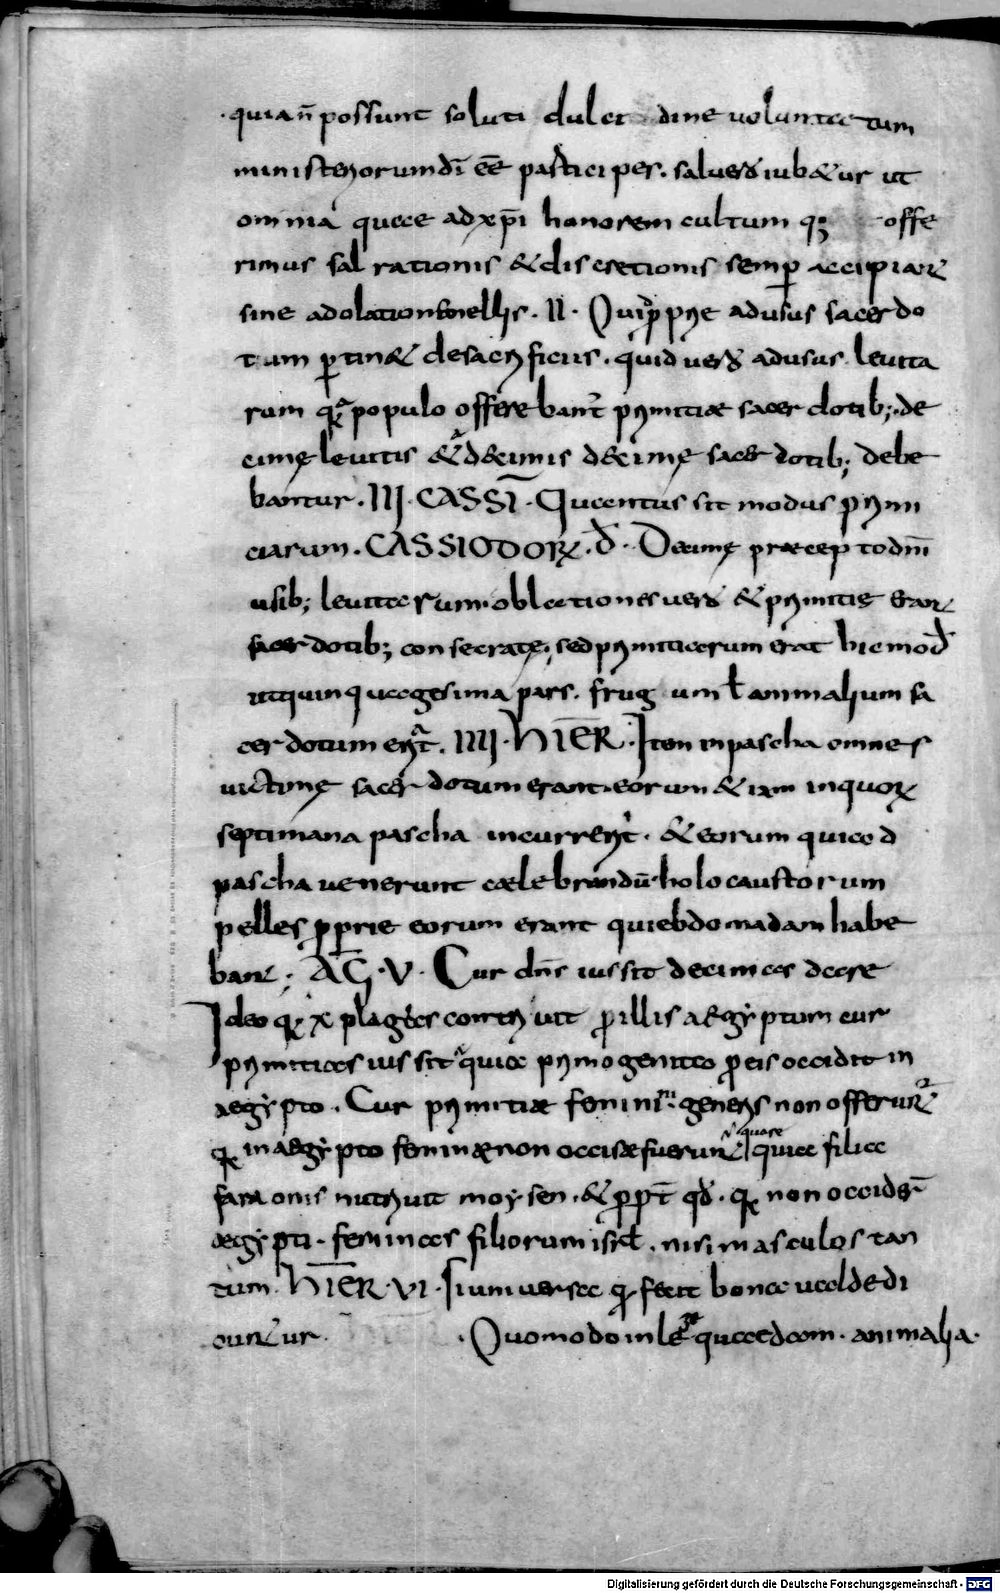 quia n̄ possunt soluti dulci dine voluntatum
ministeriorum dī eē participes. sal verō iubetur ut
omnia quae ad xp̄i honorem cultum q; offe
rimus sal rationis & discretionis semp̄ accipiat
sine adolation mellis. II. Quippe ad usus sacerdo
tum ꝑtinet de sacrificiis. quid verō ad usus levita
rum populo offerebant primitiae sacerdotib; de
cimę levitis & decimis decimę sacerdotib; debe
bantur. III. CASSĪ. Quantus sit modus primi
ciarum. CASSIODOR. d̄. Decimę praecepto dn̄i
usib; levitarum. oblationes verō & primitię erant
sacerdotib; consecratę. sed primitiarum erat hic mod
ut quinquagesima pars. frug um ł animalium sa
cerdotum erit. IIII. HIER. Item in pascha omnes
victimę sacerdotum erant. eorum & iam in quor
septimana pascha incurrerit. & eorum qui ad
pascha venerunt caelebrandū holocaustorum
pelles ꝓprie eorum erant qui ebdomadam habe
bant; AG. V. Cur dn̄s iussit decimas dare
Ideo q X plagas contrivit ꝓ illis aegyptum cur
primitias iussit quia primogenita ꝓ eis occidit in
aegypto. Cur primitiae feminini generis non offerunt
q in aegypto feminae non occisae fuerunt quare quia filia
faraonis nutrivit moysen. & ꝓpt̄ qd. q non occider
aegypti. feminas filiorum isrł. nisi masculos tan
tum. HIER. VI. Si universa q fecit bona valde di
cuntur. Quomodo in lege quaedam. animalia.
Digitalisierung gefördert durch die Deutsche Forschungsgemeinschaft - DFG